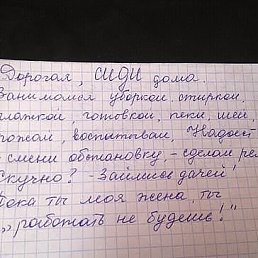 Дорогая, СИДИ дома.
Занимайся уборкой, стиркой,
глажкой, готовкой, пеки, шей,
рожай, воспитывай, Надоест
- смени обстановку, - сделай рем
Скучно? - Займись дачей!
Пока ты моя жена, ты
„работать не будешь!"